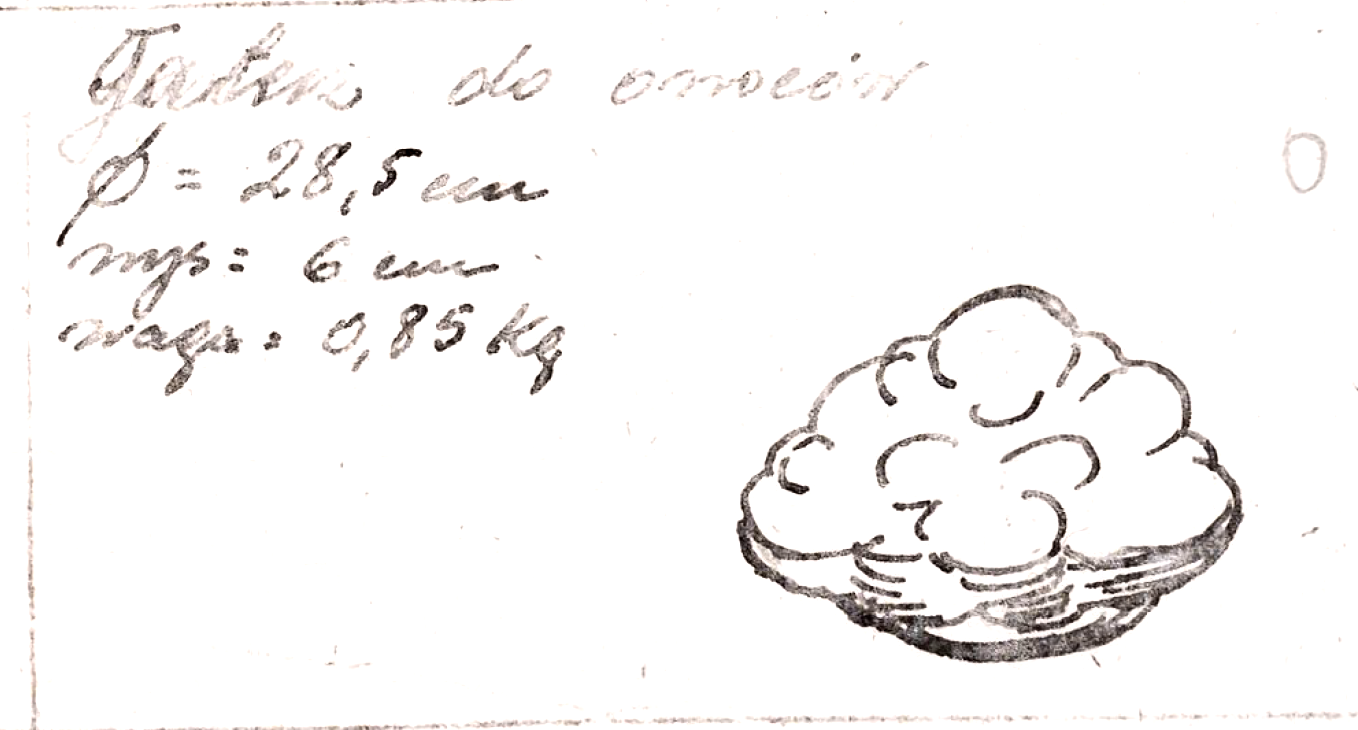 Talerz do owoców
0
ø = 28,5 cm
wys = 6 cm
waga = 0,85 Kg